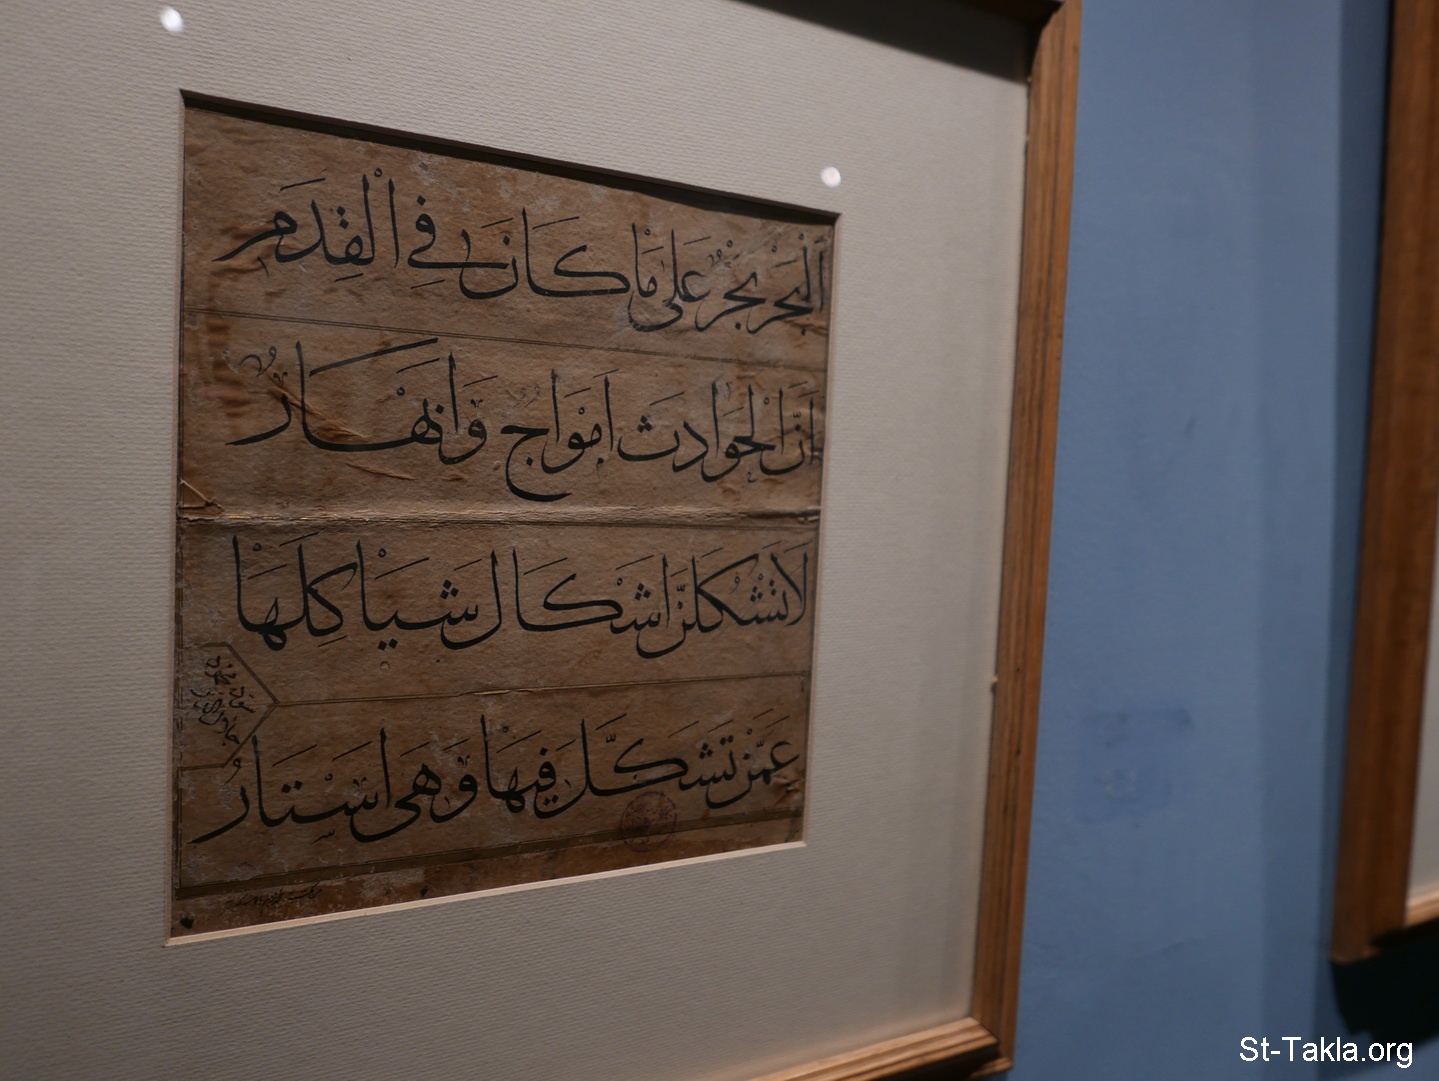 اَلْبَحْرُ بَحْرٌ عَلَى مَا كَانَ فِي الْقِدَمِ
اِنَّ الْحَوَادِثَ اَمْوَاجٌ وَاَنْهَارٌ
لَا تُشْكِلَنَّ اَشْكَالٌ تُشَاكِلُهَا
عَمَّنْ تَشَكَّلَ فِيهَا وَهِيَ اَسْتَارُ
St-Takla.org